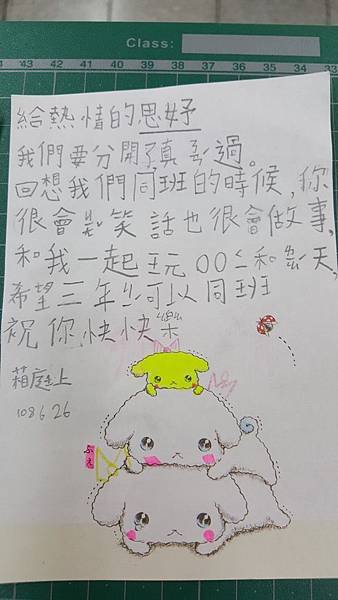 Class:
42 41 40 39 38 37 36 35 34 33
給熱情的思妤
我們要分開了真ㄋㄢˊ過。
回想我們同班的時候,你
很會ㄕㄨㄛ笑話也很會做事,
和我一起玩OOㄒㄧ和ㄌㄧㄠˊ天,
希望三年ㄐㄧˊ可以同班
祝你快快樂樂
庭上
108 6 26